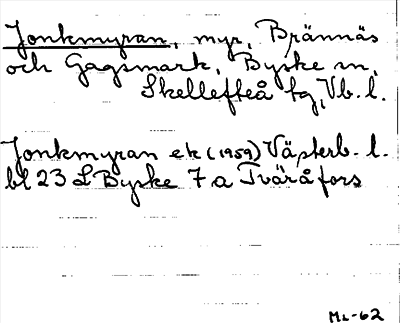 Jonkmyran, myr, Brännäs
och Gagsmark, Byske sn,
Skellefteå tg, Vb. l.
Jonkmyran ek (1959) Västerb. l.
bl 23 L Byske 7 a Tväråfors
ML-62